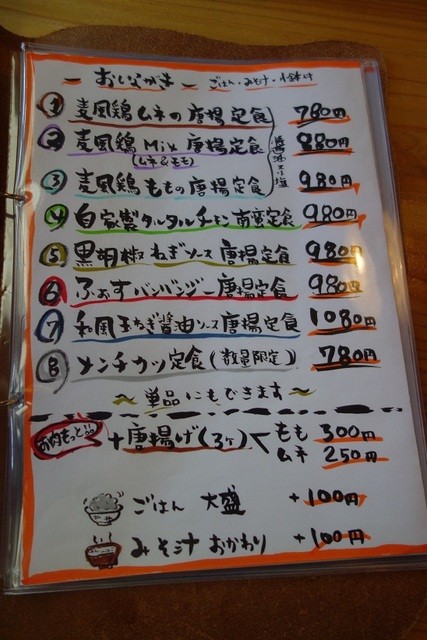 おしながき ごはん・みそ汁・小鉢付
① 麦風鶏ムネの唐揚定食 780円
② 麦風鶏Mix唐揚定食 880円
(ムネ&モモ)
③ 麦風鶏ももの唐揚定食 980円
醤油or塩
④ 自家製タルタルチキン南蛮定食 980円
⑤ 黒胡椒ねぎソース唐揚定食 980円
⑥ ふぉすバンバンジー唐揚定食 980円
⑦ 和風玉ねぎ醤油ソース唐揚定食 1080円
⑧ メンチカツ定食(数量限定) 780円
〜単品にもできます〜
お肉もっと!! +唐揚げ(3ヶ)< もも 300円
ムネ 250円
ごはん 大盛 +100円
みそ汁 おかわり +100円